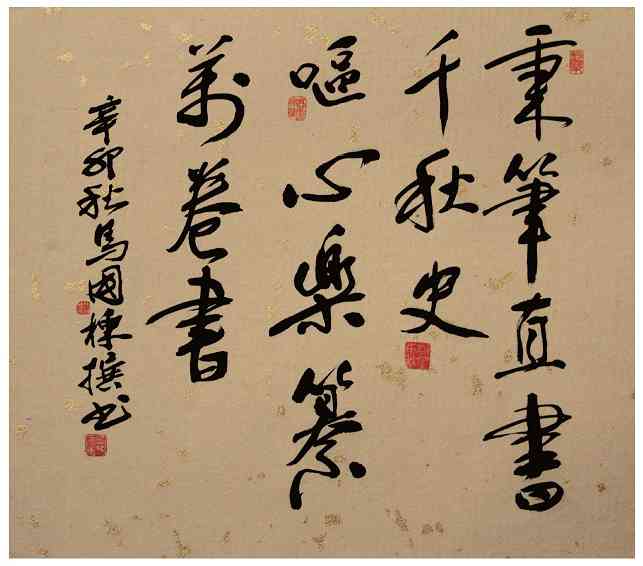 秉筆直書
千秋史
嘔心樂纂
萬卷書
辛卯秋馬國棟撰書